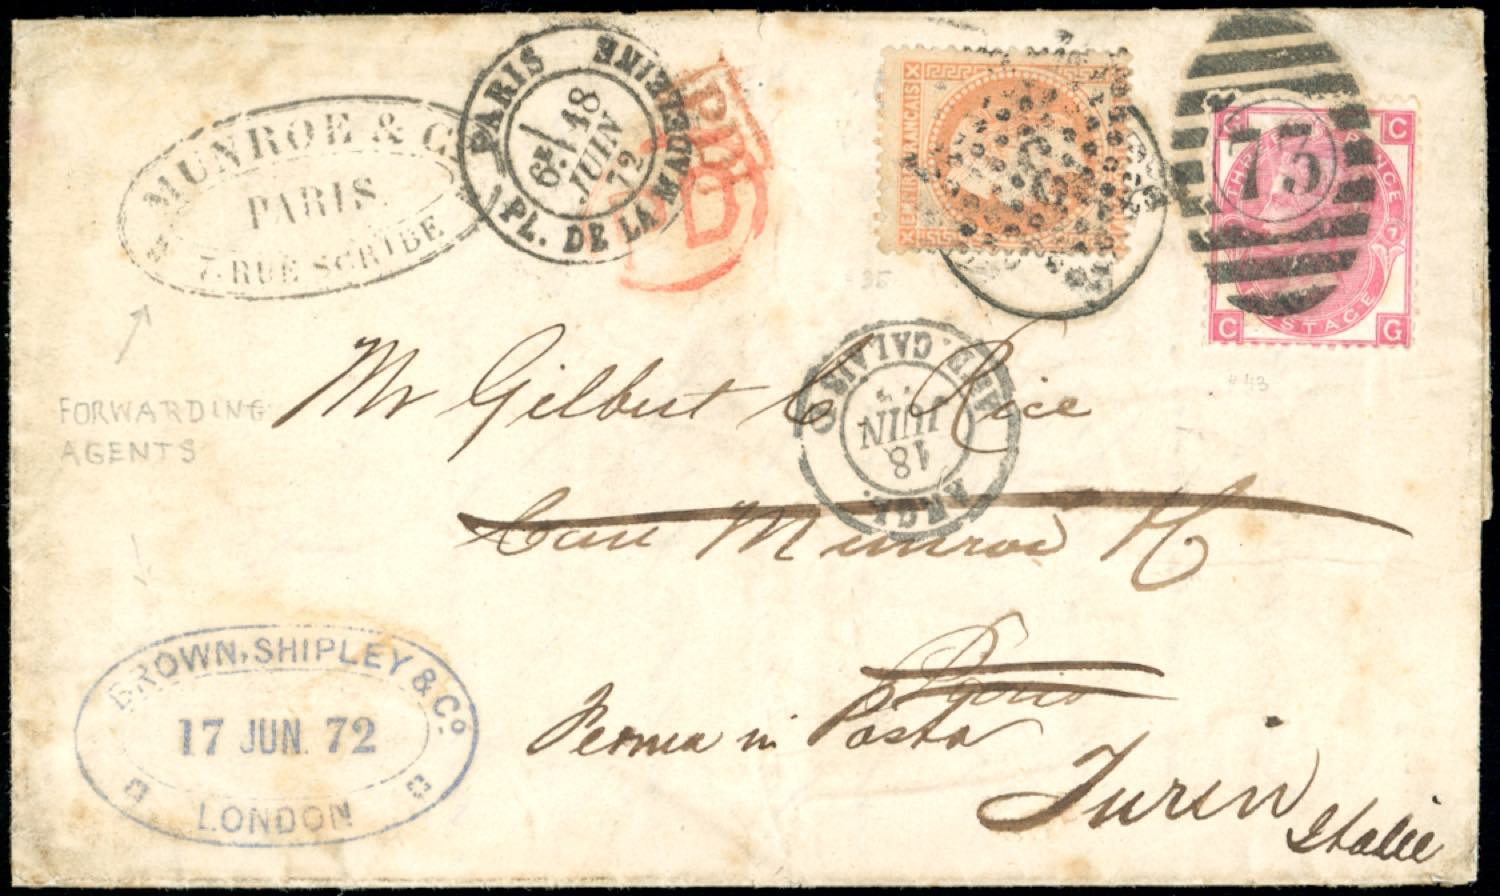 MUNROE & C
PARIS.
7. RUE SCRIBE
PARIS
PL. DE LA MADELEINE
6E
18
JUIN
72
PD
PD
FRANCAIS
73
C
G
THREE PENCE
7
POSTAGE
C G
35
# 43
Mr Gilbert C Rice
CALAIS
18
JUIN
FORWARDING
AGENTS
Care Munroe
Paris
Ferma in Posta
Turin
Italie
BROWN, SHIPLEY & Co.
17 JUN. 72
LONDON